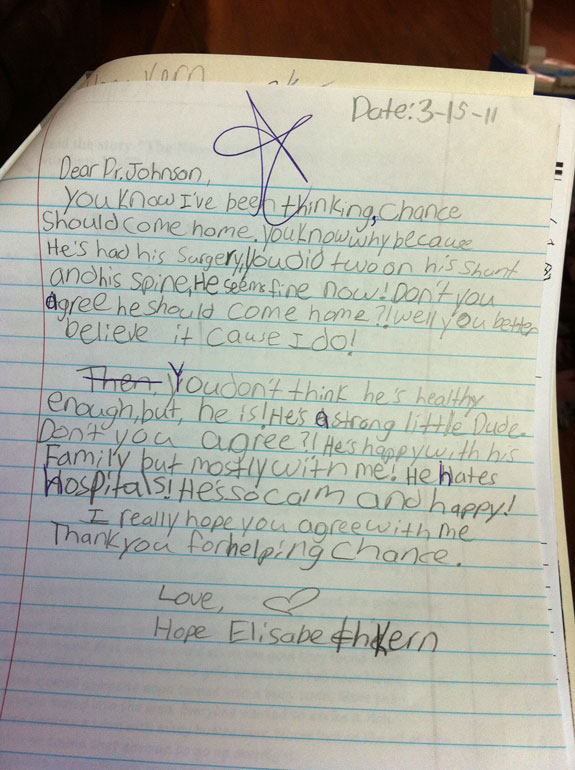 Kern
Date: 3-15-11
Dear Dr. Johnson,
You know I've been thinking, Chance
Should come home. You know why because
He's had his surgery, you did two on his shunt
and his spine, He seems fine now! Don't you
agree he should come home?! Well you better
believe it cause I do!
Then, You don't think he's healthy
enough, but, he is! He's a strong little Dude.
Don't you agree?! He's happy with his
Family but mostly with me! He hates
Hospitals! He's so calm and happy!
I really hope you agree with me
Thank you for helping Chance.
Love,
Hope Elisabeth Kern